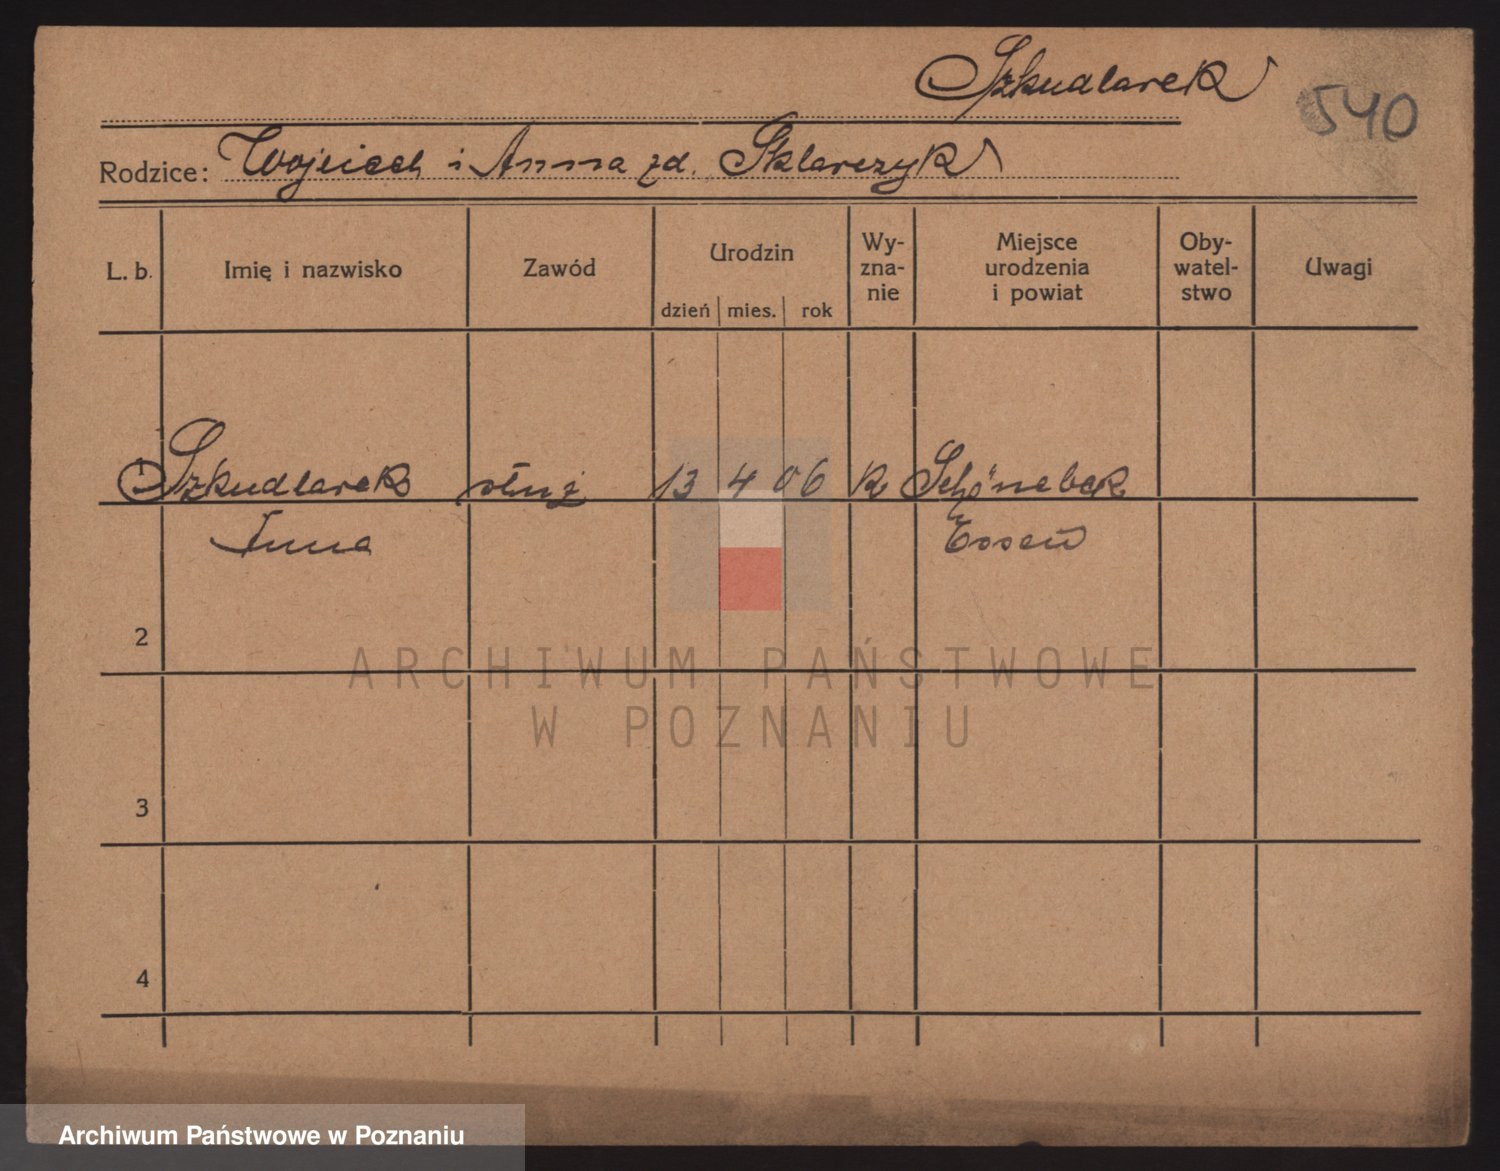 Szkudlarek
540
Rodzice: Wojciech i Anna zd. Szklarczyk
L. b. Imię i nazwisko Zawód Urodzin Wy-zna-nie Miejsce urodzenia i powiat Oby-watel-stwo Uwagi
dzień mies. rok
1 Szkudlarek służ 13 4 06 k Schönebek
Anna Essen
2
ARCHIWUM PAŃSTWOWE
W POZNANIU
3
4
Archiwum Państwowe w Poznaniu